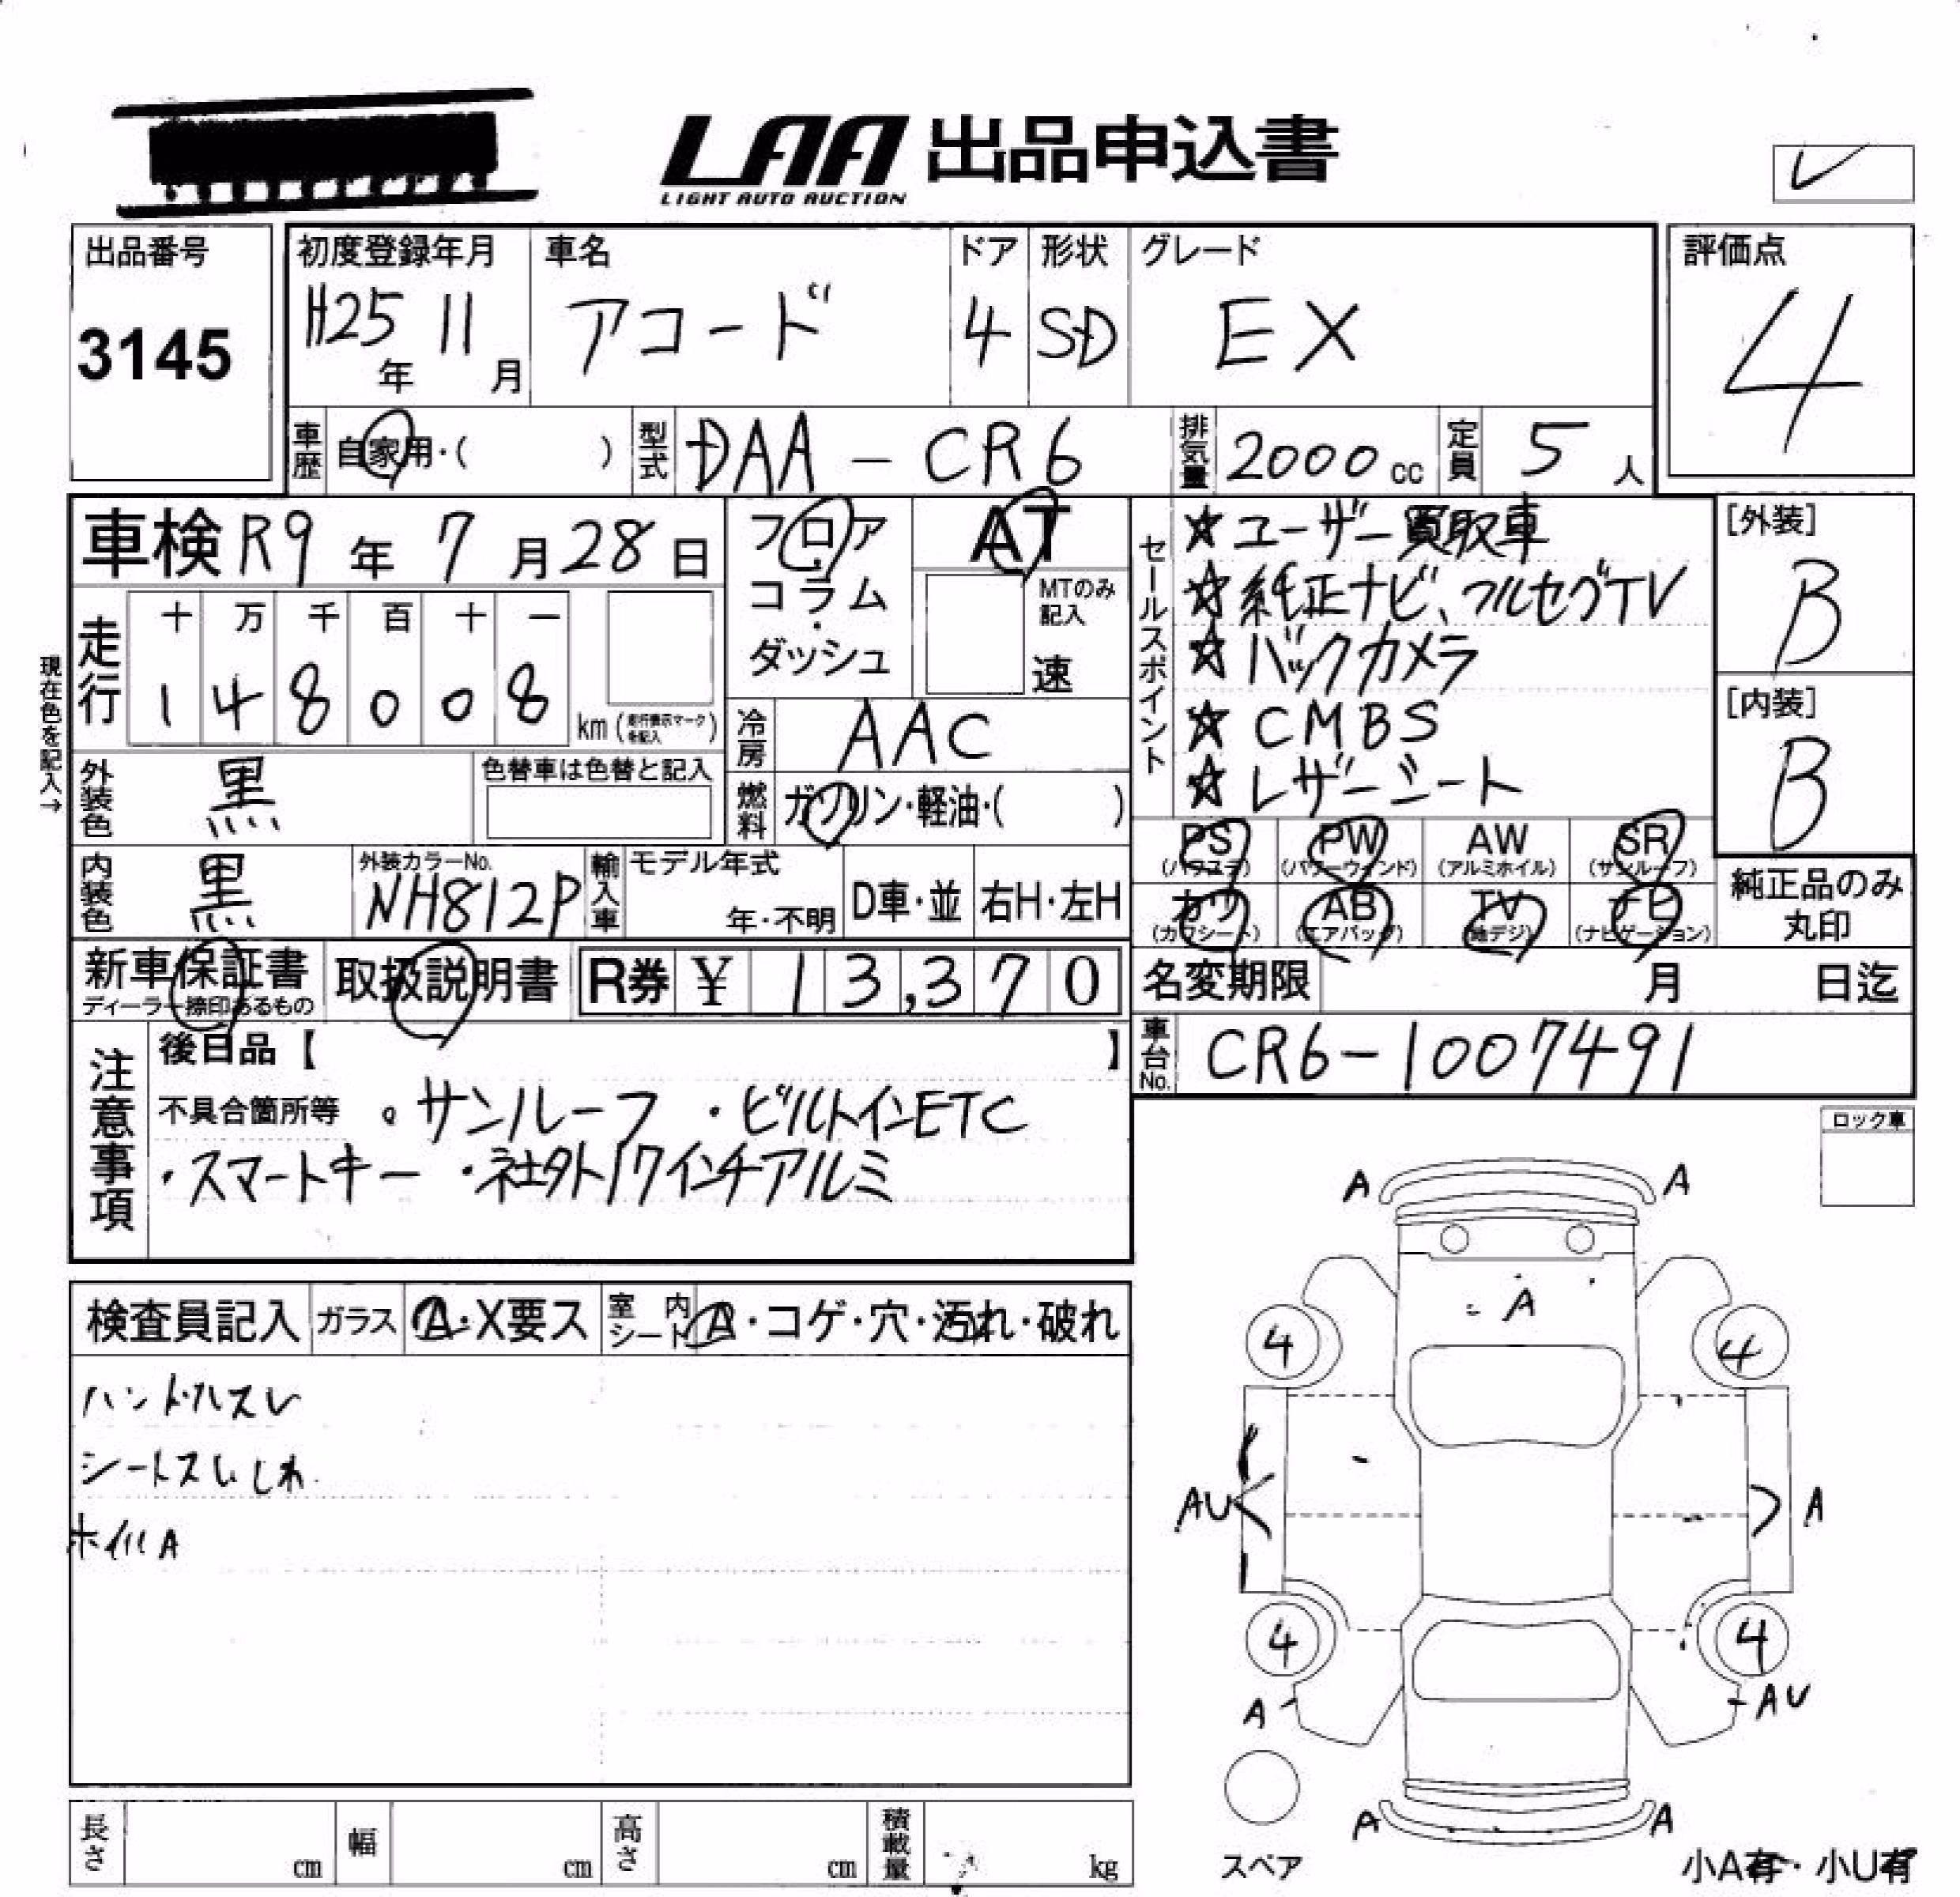 LAA 出品申込書
LIGHT AUTO AUCTION
出品番号
3145
初度登録年月
H25年 11月
車名
アコード
ドア
4
形状
SD
グレード
EX
評価点
4
車歴 自家用・( )
型式 DAA-CR6
排気量 2000cc
定員 5人
車検 R9年7月28日
フロア・コラム・ダッシュ
AT
MTのみ記入
速
セールスポイント
☆ユーザー買取車
☆純正ナビ、フルセグTV
☆バックカメラ
☆CMBS
☆レザーシート
[外装]
B
[内装]
B
現在色を記入→
走行
十 万 千 百 十 一
1 4 8 0 0 8
km(走行表示マークを記入)
冷房 AAC
外装色 黒
色替車は色替と記入
燃料 ガソリン・軽油・( )
内装色 黒
外装カラーNo.
NH812P
輸入車
モデル年式
年・不明
D車・並
右H・左H
PS (パワステ)
PW (パワーウィンド)
AW (アルミホイル)
SR (サンルーフ)
カワ (カワシート)
AB (エアバッグ)
TV (地デジ)
ナビ (ナビゲーション)
純正品のみ丸印
新車保証書
ディーラー捺印あるもの
取扱説明書
R券 ¥ 13,370
名変期限 月 日迄
車台No. CR6-1007491
注意事項
後日品【 】
不具合箇所等 ・サンルーフ ・ビルトインETC
・スマートキー ・社外17インチアルミ
ロック車
検査員記入
ガラス A・X要ス
室内シート A・コゲ・穴・汚れ・破れ
ハンドルスレ
シートスレ、しわ
ホイルA
A A
A
4 4
AU A
4 4
A AU
A A
スペア
小A有・小U有
長さ cm
幅 cm
高さ cm
積載量 kg